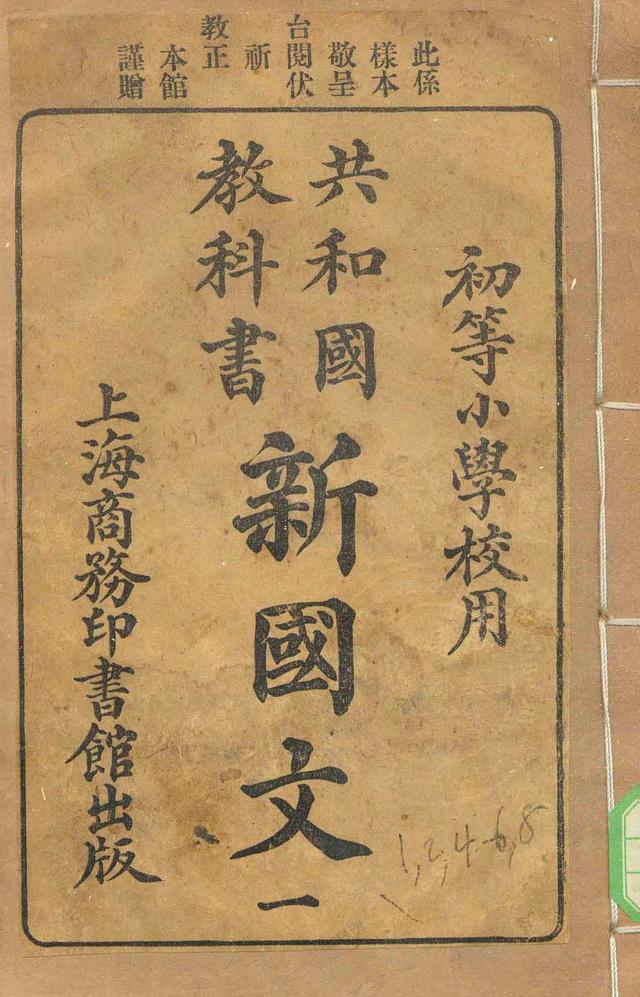 此係
樣本
敬呈
台閱伏
祈
教正
本館
謹贈
初等小學校用
共和國
教科書
新國文
一
上海商務印書館出版
1,2,4-6,8